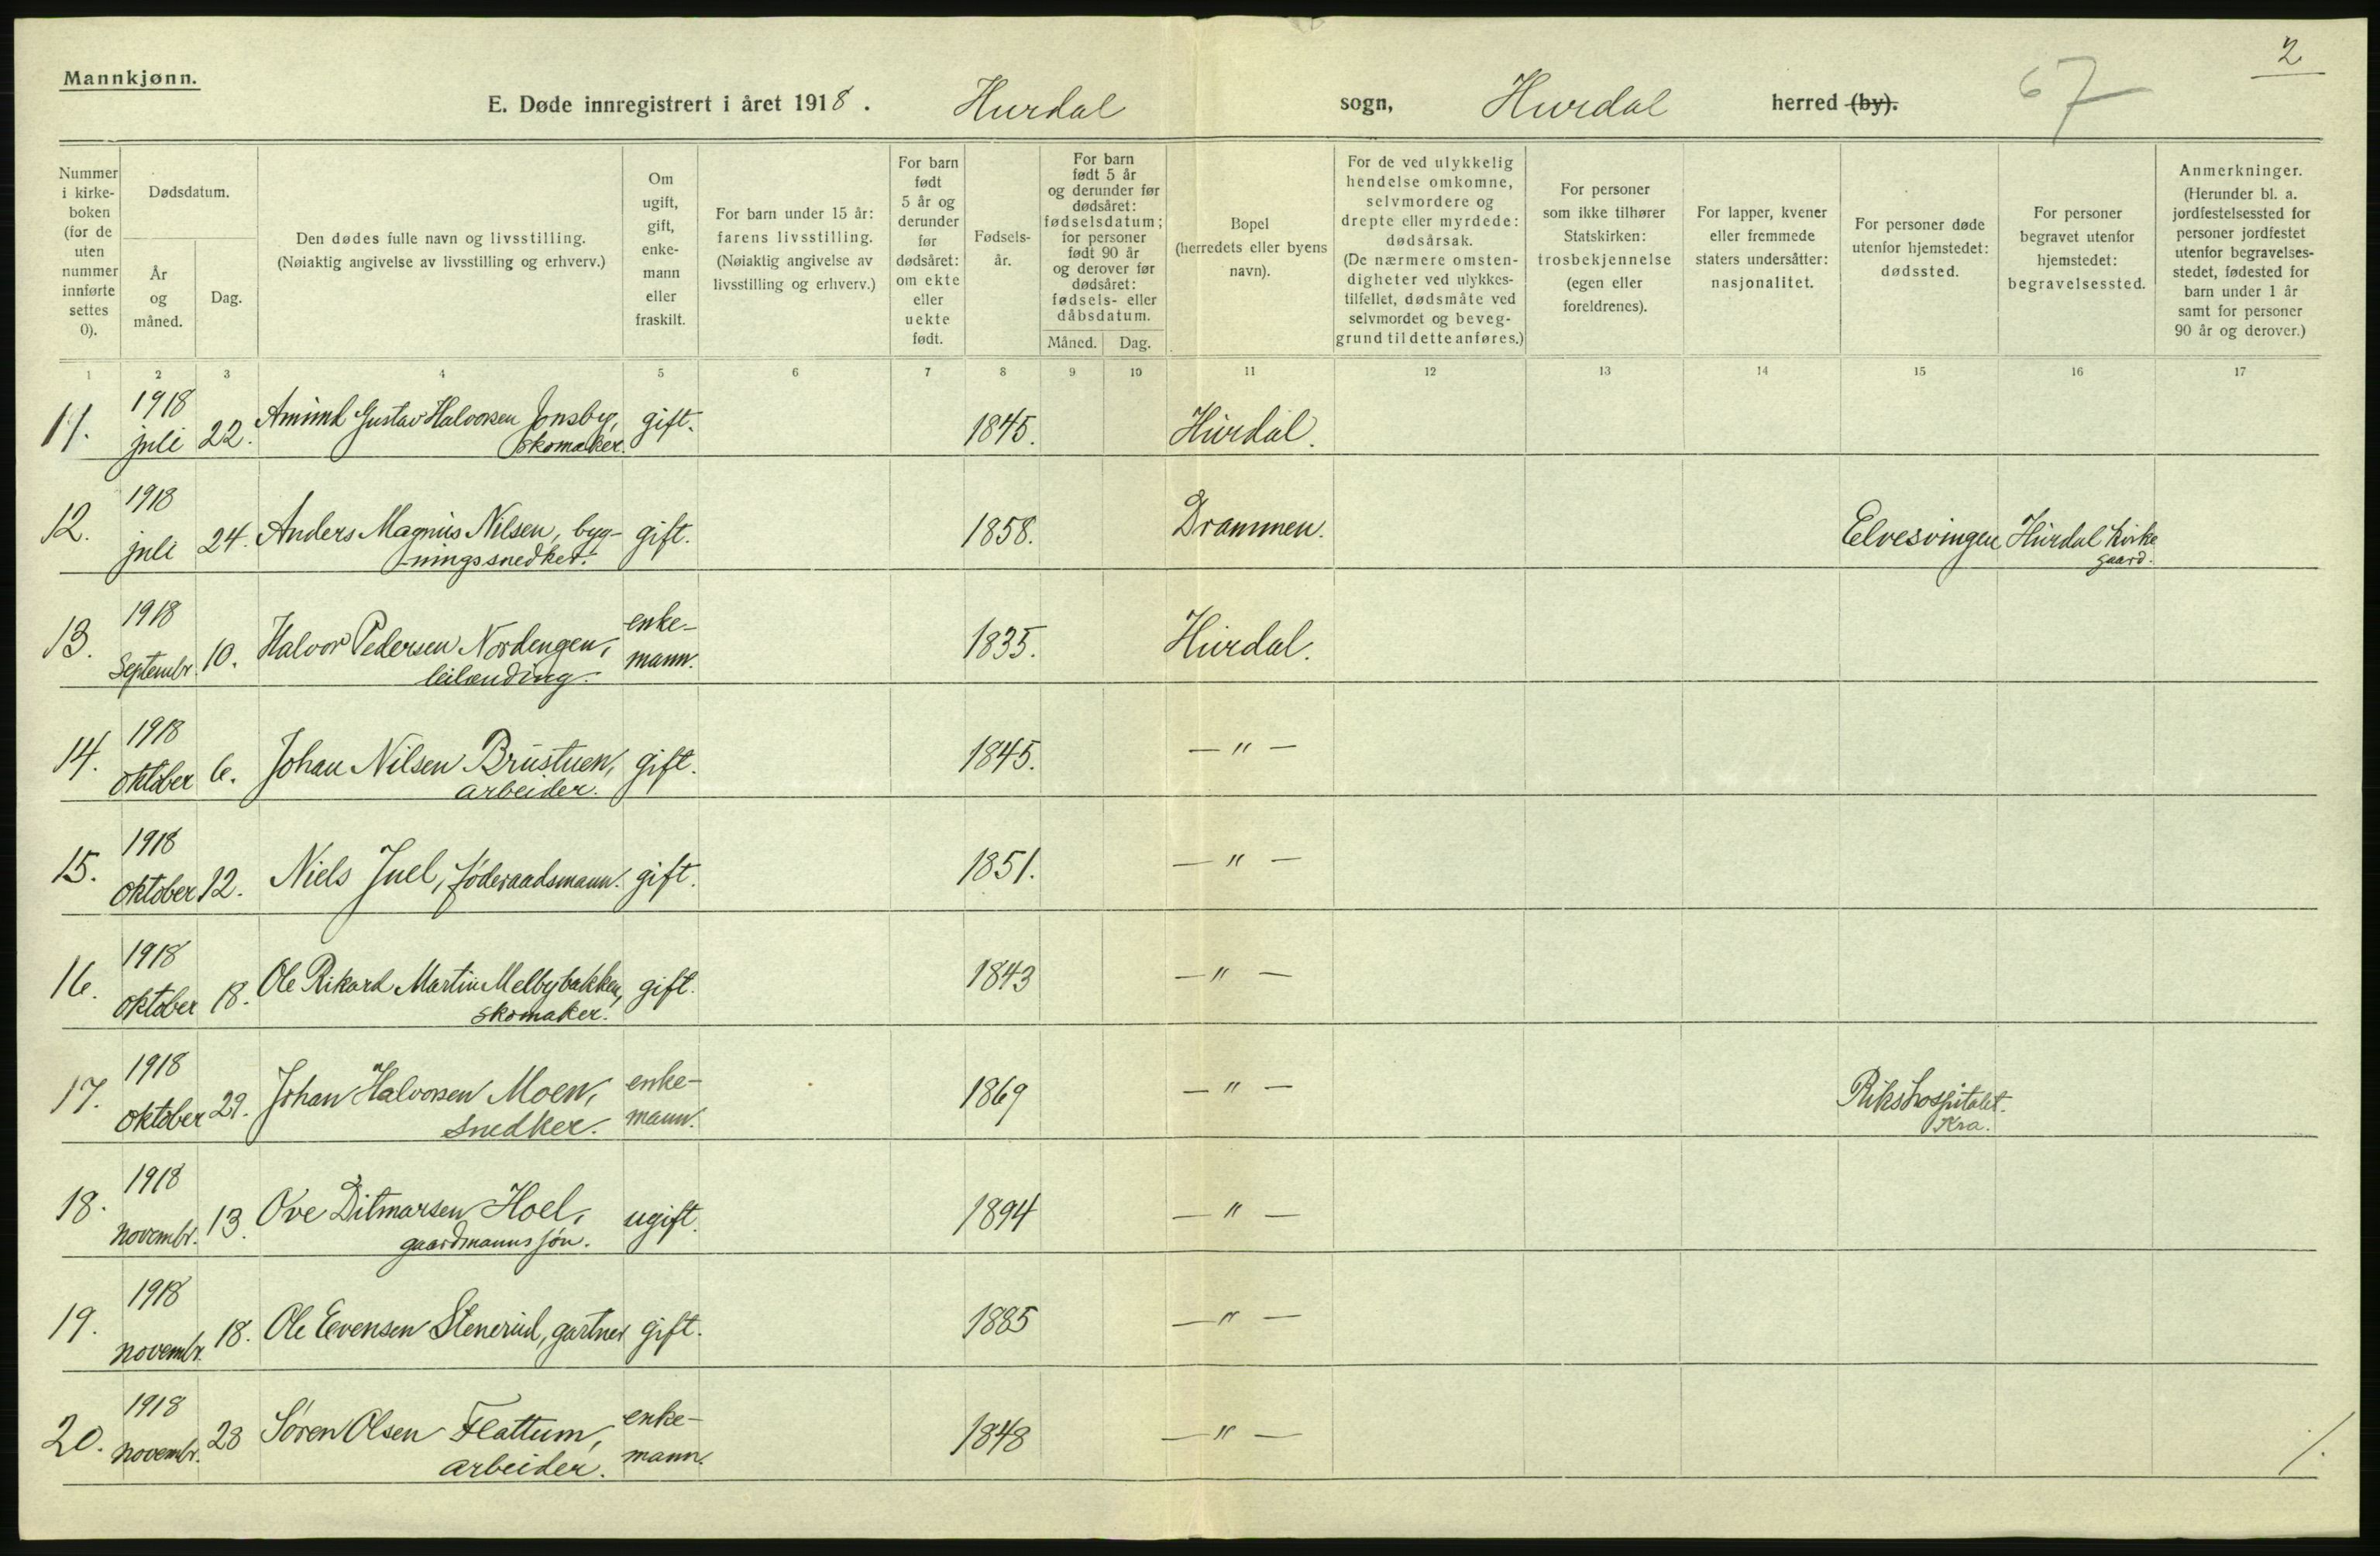 2
67
Mannkjønn.
E. Døde innregistrert i året 1918. Hurdal sogn, Hurdal herred (by).
Nummer i kirke-boken (for de uten nummer innførte settes 0).
Dødsdatum.
År og måned.
Dag.
Den dødes fulle navn og livsstilling.
(Nøiaktig angivelse av livsstilling og erhverv.)
Om ugift, gift, enke-mann eller fraskilt.
For barn under 15 år: farens livsstilling. (Nøiaktig angivelse av livsstilling og erhverv.)
For barn født 5 år og derunder før dødsåret: om ekte eller uekte født.
Fødsels-år.
For barn født 5 år og derunder før dødsåret: fødselsdatum; for personer født 90 år og derover før dødsåret: fødsels- eller dåbsdatum.
Måned. Dag.
Bopel (herredets eller byens navn).
For de ved ulykkelig hendelse omkomne, selvmordere og drepte eller myrdede: dødsårsak. (De nærmere omsten-digheter ved ulykkes-tilfellet, dødsmåte ved selvmordet og beveg-grund til dette anføres.)
For personer som ikke tilhører Statskirken: trosbekjennelse (egen eller foreldrenes).
For lapper, kvener eller fremmede staters undersåtter: nasjonalitet.
For personer døde utenfor hjemstedet: dødssted.
For personer begravet utenfor hjemstedet: begravelsessted.
Anmerkninger. (Herunder bl. a. jordfestelsessted for personer jordfestet utenfor begravelses-stedet, fødested for barn under 1 år samt for personer 90 år og derover.)
1 2 3 4 5 6 7 8 9 10 11 12 13 14 15 16 17
11. 1918 juli 22. Amund Gustav Halvorsen Jonsby, skomaker. gift. 1845. Hurdal.
12. 1918 juli 24. Anders Magnus Nilsen, byg-ningssnedker. gift. 1858. Drammen. Elvesvingen Hurdal Kirke gaard.
13. 1918 Septembr. 10. Halvor Pedersen Nordengen, leilænding. enke-mann. 1835. Hurdal.
14. 1918 oktober 6. Johan Nilsen Brustuen, arbeider. gift. 1845. — " —
15. 1918 oktober 12. Niels Juel, føderaadsmann. gift. 1851. — " —
16. 1918 oktober 18. Ole Rikard Martin Melbybakken, skomaker. gift. 1843 — " —
17. 1918 oktober 29. Johan Halvorsen Moen, snedker. enke-mann. 1869 — " — Rikshospitalet. Kra.
18. 1918 novembr. 13. Ove Ditmarsen Hoel, gaardmanns søn. ugift. 1894 — " —
19. 1918 novembr. 18. Ole Evensen Stenerud, gartner gift. 1885 — " —
20. 1918 novembr. 28 Søren Olsen Flattum, arbeider. enke-mann. 1848 — " —